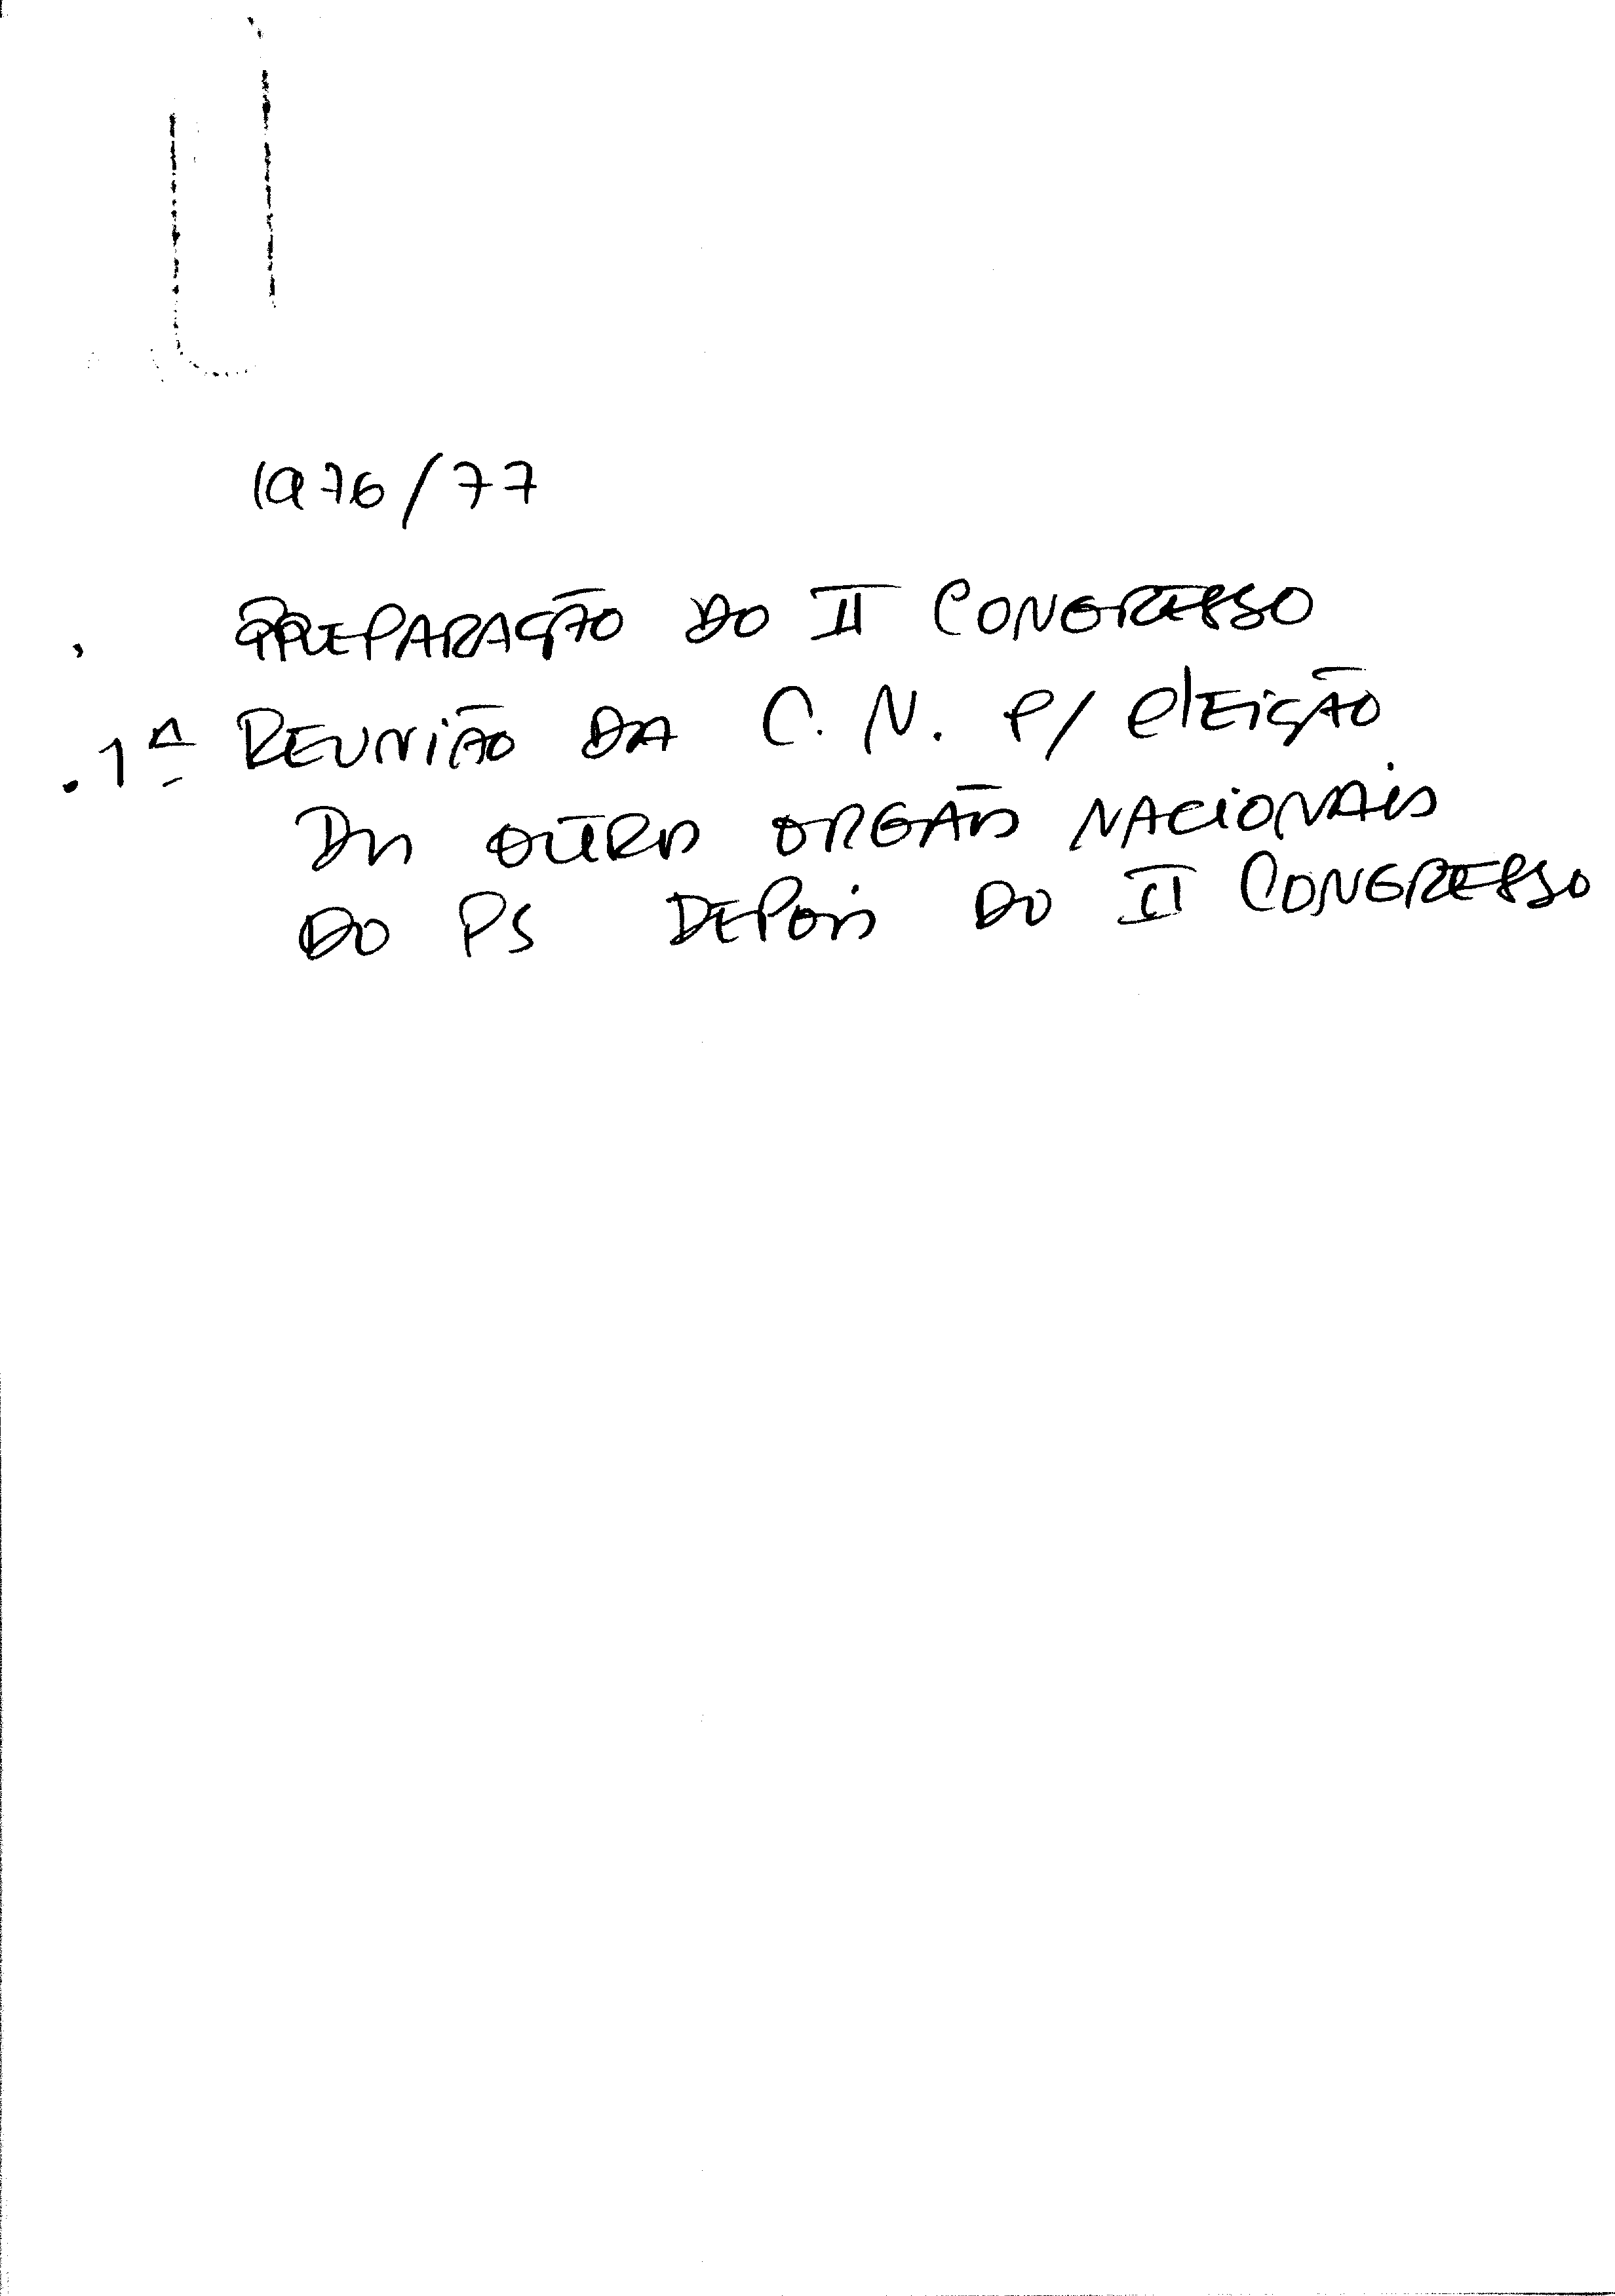 1976/77
. PREPARAÇÃO DO II CONGRESSO
. 1ª REUNIÃO DA C. N. P/ ELEIÇÃO
DOS OUTROS ORGÃOS NACIONAIS
DO PS DEPOIS DO II CONGRESSO